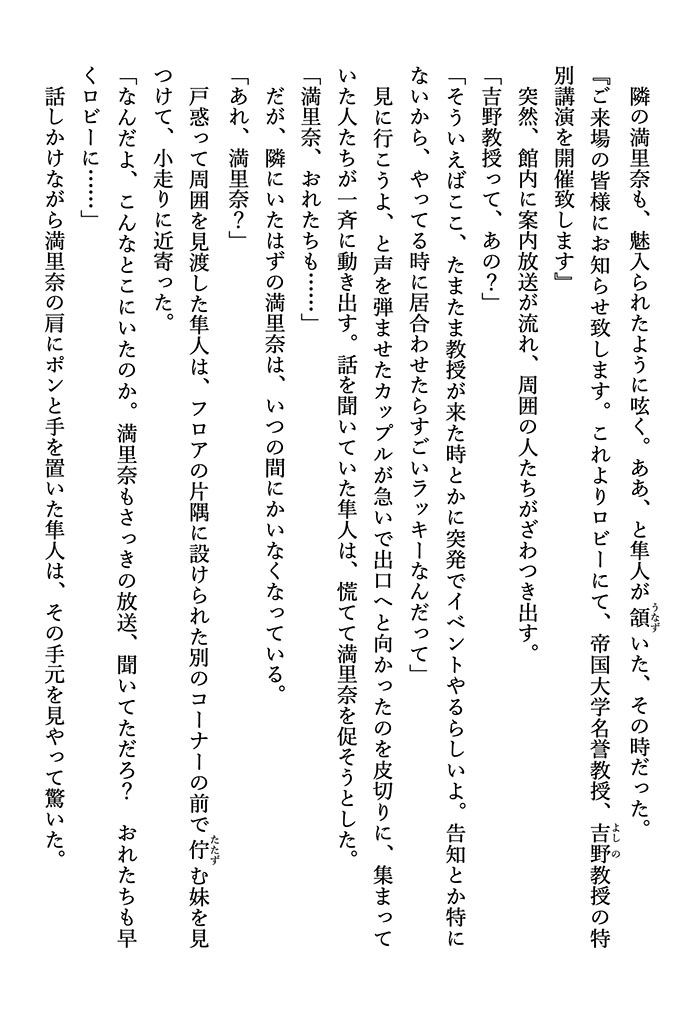 隣の満里奈も、魅入られたように呟く。ああ、と隼人が頷いた、その時だった。
『ご来場の皆様にお知らせ致します。これよりロビーにて、帝国大学名誉教授、吉野教授の特
別講演を開催致します』
　突然、館内に案内放送が流れ、周囲の人たちがざわつき出す。
「吉野教授って、あの？」
「そういえばここ、たまたま教授が来た時とかに突発でイベントやるらしいよ。告知とか特に
ないから、やってる時に居合わせたらすごいラッキーなんだって」
　見に行こうよ、と声を弾ませたカップルが急いで出口へと向かったのを皮切りに、集まって
いた人たちが一斉に動き出す。話を聞いていた隼人は、慌てて満里奈を促そうとした。
「満里奈、おれたちも……」
　だが、隣にいたはずの満里奈は、いつの間にかいなくなっている。
「あれ、満里奈？」
　戸惑って周囲を見渡した隼人は、フロアの片隅に設けられた別のコーナーの前で佇む妹を見
つけて、小走りに近寄った。
「なんだよ、こんなとこにいたのか。満里奈もさっきの放送、聞いてただろ？　おれたちも早
くロビーに……」
　話しかけながら満里奈の肩にポンと手を置いた隼人は、その手元を見やって驚いた。
うなず
よしの
たたず